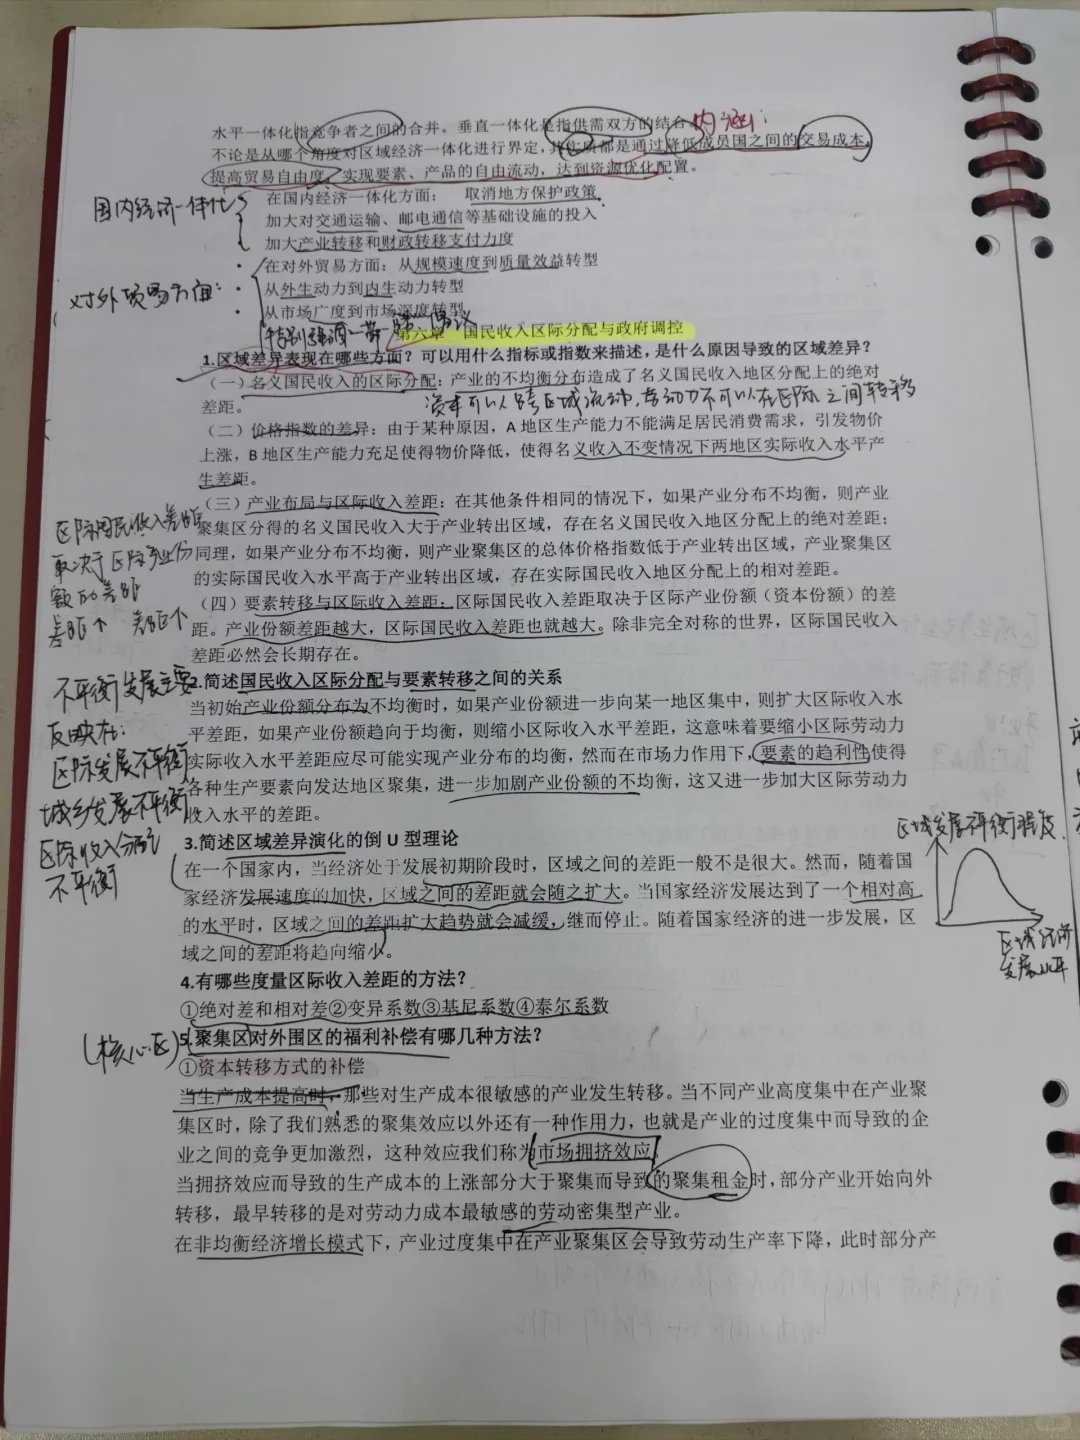 水平一体化指竞争者之间的合并。垂直一体化是指供需双方的结合。
内涵：
不论是从哪个角度对区域经济一体化进行界定，其实质都是通过降低成员国之间的交易成本，
提高贸易自由度，实现要素、产品的自由流动，达到资源优化配置。
国内经济一体化
在国内经济一体化方面： 取消地方保护政策
加大对交通运输、邮电通信等基础设施的投入
加大产业转移和财政转移支付力度
对外贸易方面：
在对外贸易方面：从规模速度到质量效益转型
从外生动力到内生动力转型
从市场广度到市场深度转型
特别强调一带一路倡议
第六章 国民收入区际分配与政府调控
1.区域差异表现在哪些方面？可以用什么指标或指数来描述，是什么原因导致的区域差异？
（一）名义国民收入的区际分配：产业的不均衡分布造成了名义国民收入地区分配上的绝对
差距。
资本可以跨区域流动，劳动力不可以在区际之间转移
（二）价格指数的差异：由于某种原因，A 地区生产能力不能满足居民消费需求，引发物价
上涨，B 地区生产能力充足使得物价降低，使得名义收入不变情况下两地区实际收入水平产
生差距。
（三）产业布局与区际收入差距：在其他条件相同的情况下，如果产业分布不均衡，则产业
聚集区分得的名义国民收入大于产业转出区域，存在名义国民收入地区分配上的绝对差距；
同理，如果产业分布不均衡，则产业聚集区的总体价格指数低于产业转出区域，产业聚集区
的实际国民收入水平高于产业转出区域，存在实际国民收入地区分配上的相对差距。
（四）要素转移与区际收入差距：区际国民收入差距取决于区际产业份额（资本份额）的差
距。产业份额差距越大，区际国民收入差距也就越大。除非完全对称的世界，区际国民收入
差距必然会长期存在。
区际国民收入差距
取决于区际产业份
额的差距
差距个 差距个
2.简述国民收入区际分配与要素转移之间的关系
当初始产业份额分布为不均衡时，如果产业份额进一步向某一地区集中，则扩大区际收入水
平差距，如果产业份额趋向于均衡，则缩小区际收入水平差距，这意味着要缩小区际劳动力
实际收入水平差距应尽可能实现产业分布的均衡，然而在市场力作用下，要素的趋利性使得
各种生产要素向发达地区聚集，进一步加剧产业份额的不均衡，这又进一步加大区际劳动力
收入水平的差距。
不平衡发展主要
反映在：
区际发展不平衡
城乡发展不平衡
区际收入分配
不平衡
3.简述区域差异演化的倒 U 型理论
在一个国家内，当经济处于发展初期阶段时，区域之间的差距一般不是很大。然而，随着国
家经济发展速度的加快，区域之间的差距就会随之扩大。当国家经济发展达到了一个相对高
的水平时，区域之间的差距扩大趋势就会减缓，继而停止。随着国家经济的进一步发展，区
域之间的差距将趋向缩小。
区域发展不平衡程度
区域经济
发展水平
4.有哪些度量区际收入差距的方法？
①绝对差和相对差②变异系数③基尼系数④泰尔系数
(核心区)
5.聚集区对外围区的福利补偿有哪几种方法？
①资本转移方式的补偿
当生产成本提高时，那些对生产成本很敏感的产业发生转移。当不同产业高度集中在产业聚
集区时，除了我们熟悉的聚集效应以外还有一种作用力，也就是产业的过度集中而导致的企
业之间的竞争更加激烈，这种效应我们称为市场拥挤效应
当拥挤效应而导致的生产成本的上涨部分大于聚集而导致的聚集租金时，部分产业开始向外
转移，最早转移的是对劳动力成本最敏感的劳动密集型产业。
在非均衡经济增长模式下，产业过度集中在产业聚集区会导致劳动生产率下降，此时部分产